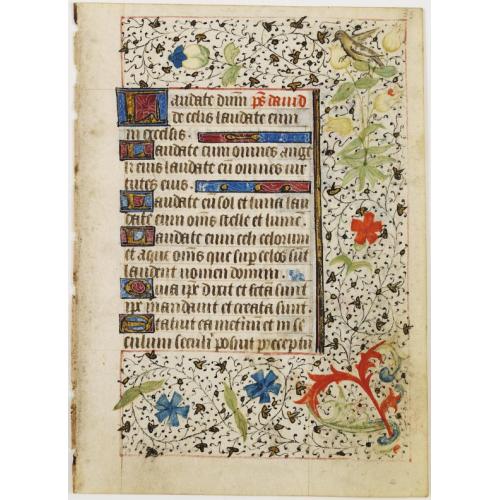 Laudate dnm ps dauid
de celis laudate eum
in excelsis.
Laudate eum omnes ange
li eius laudate eu omnes uir
tutes eius.
Laudate eu sol et luna lau
date eum oms stelle et lume
Laudate eum celi celorum
et aque oms que sup celos sut
laudent nomen domini.
Quia ipe dixit et fcta sunt
ipe mandauit et creata sunt
Statuit ea in etnum et in se
culum seculi posuit preceptu